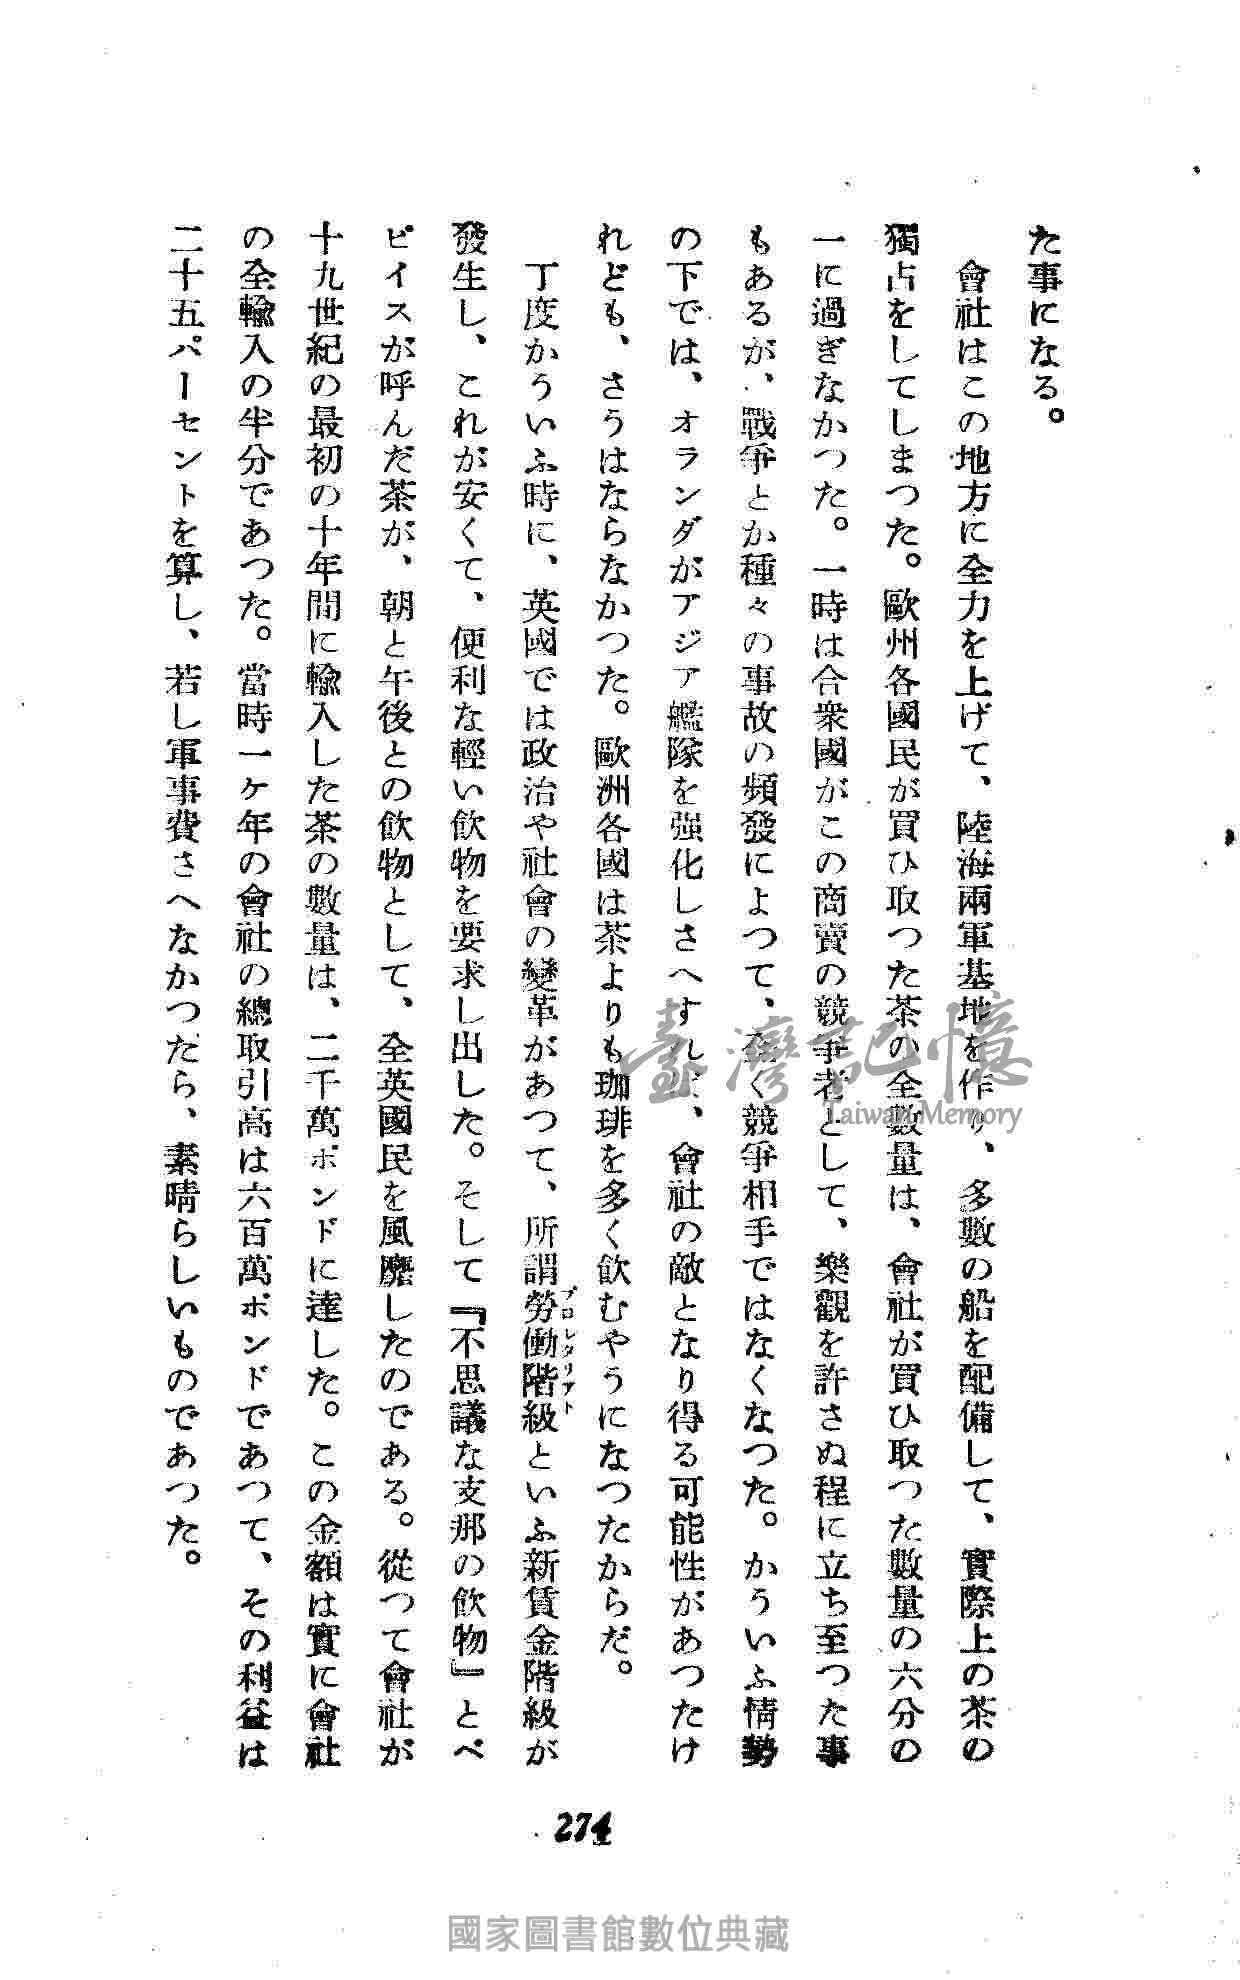 た事になる。
會社はこの地方に全力を上げて、陸海兩軍基地を作り、多數の船を配備して、實際上の茶の
獨占をしてしまつた。歐州各國民が買ひ取つた茶の全數量は、會社が買ひ取つた數量の六分の
一に過ぎなかつた。一時は合衆國がこの商賣の競爭者として、樂觀を許さぬ程に立ち至つた事
もあるが、戰爭とか種々の事故の頻發によつて、全く競爭相手ではなくなつた。かういふ情勢
の下では、オランダがアジア艦隊を强化しさへすれば、會社の敵となり得る可能性があつたけ
れども、さうはならなかつた。歐洲各國は茶よりも珈琲を多く飮むやうになつたからだ。
丁度かういふ時に、英國では政治や社會の變革があつて、所謂勞働階級といふ新賃金階級が
プロレタリアト
發生し、これが安くて、便利な輕い飮物を要求し出した。そして『不思議な支那の飮物』とペ
ピイスが呼んだ茶が、朝と午後との飮物として、全英國民を風靡したのである。從つて會社が
十九世紀の最初の十年間に輸入した茶の數量は、二千萬ポンドに達した。この金額は實に會社
の全輸入の半分であつた。當時一ケ年の會社の總取引高は六百萬ポンドであつて、その利益は
二十五パーセントを算し、若し軍事費さへなかつたら、素晴らしいものであつた。
274
臺灣記憶
Taiwan Memory
國家圖書館數位典藏